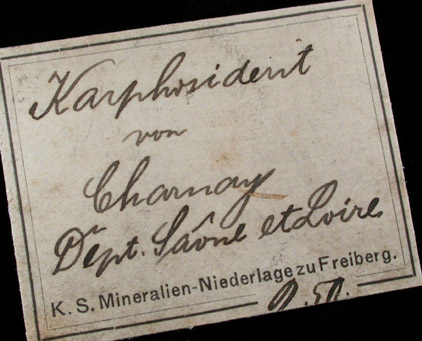 Karphosiderit
von
Charnay
Dept. Saône et Loire
K. S. Mineralien-Niederlage zu Freiberg.